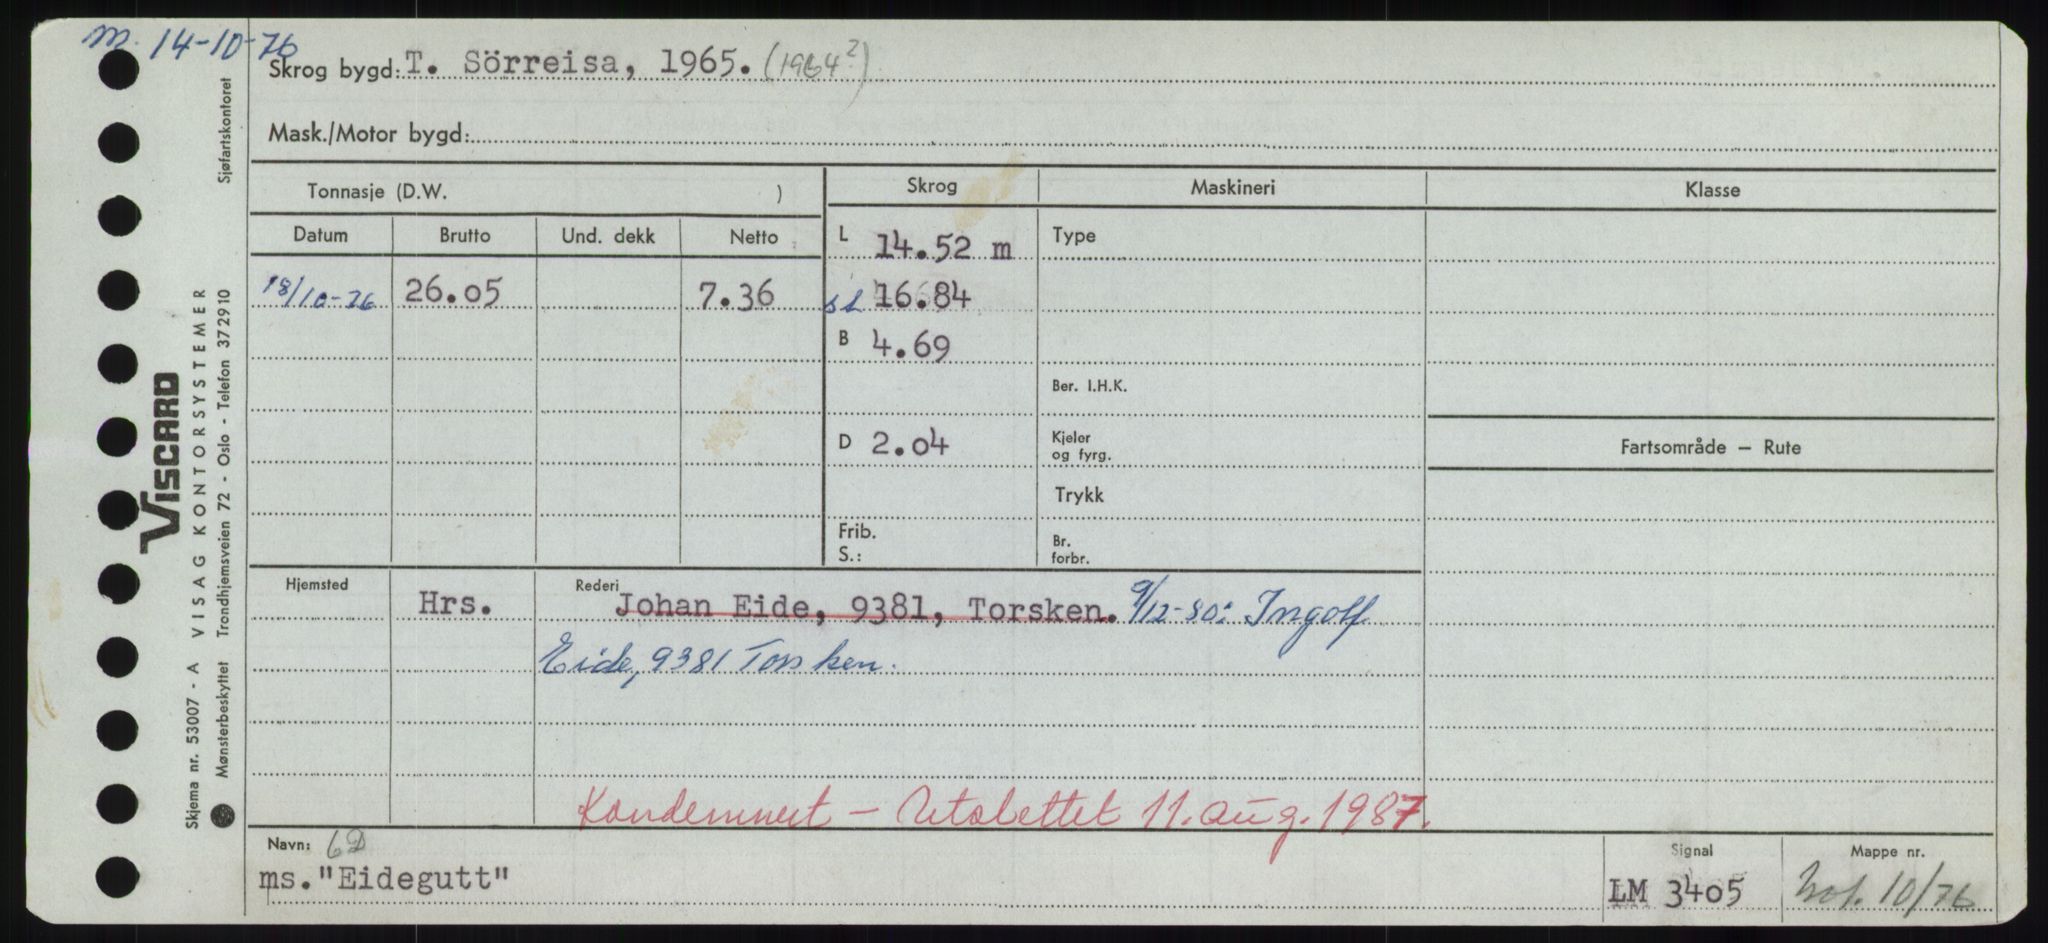 m. 14-10-76
Skrog bygd: T. Sörreisa, 1965. (1964?)
Mask./Motor bygd:
Tonnasje (D.W. )
Skrog Maskineri Klasse
Datum Brutto Und. dekk Netto
L 14.52 m Type
18/10-76 26.05 7.36 sL 16.84
B 4.69
Ber. I.H.K.
D 2.04 Kjeler og fyrg.
Fartsområde – Rute
Trykk
Frib. S.: Br. forbr.
Hjemsted Hrs. Rederi Johan Eide, 9381, Torsken. 9/12-80: Ingolf
Eide, 9381 Torsken.
Kondemnert – Utslettet 11. aug. 1987.
Navn: 6D
ms."Eidegutt"
Signal LM 3405
Mappe nr. 10/76
VISCARD
VISAG KONTORSYSTEMER
Trondhjemsveien 72 - Oslo - Telefon 372910
Skjema nr. 53007 - A
Mønsterbeskyttet
Sjøfartskontoret